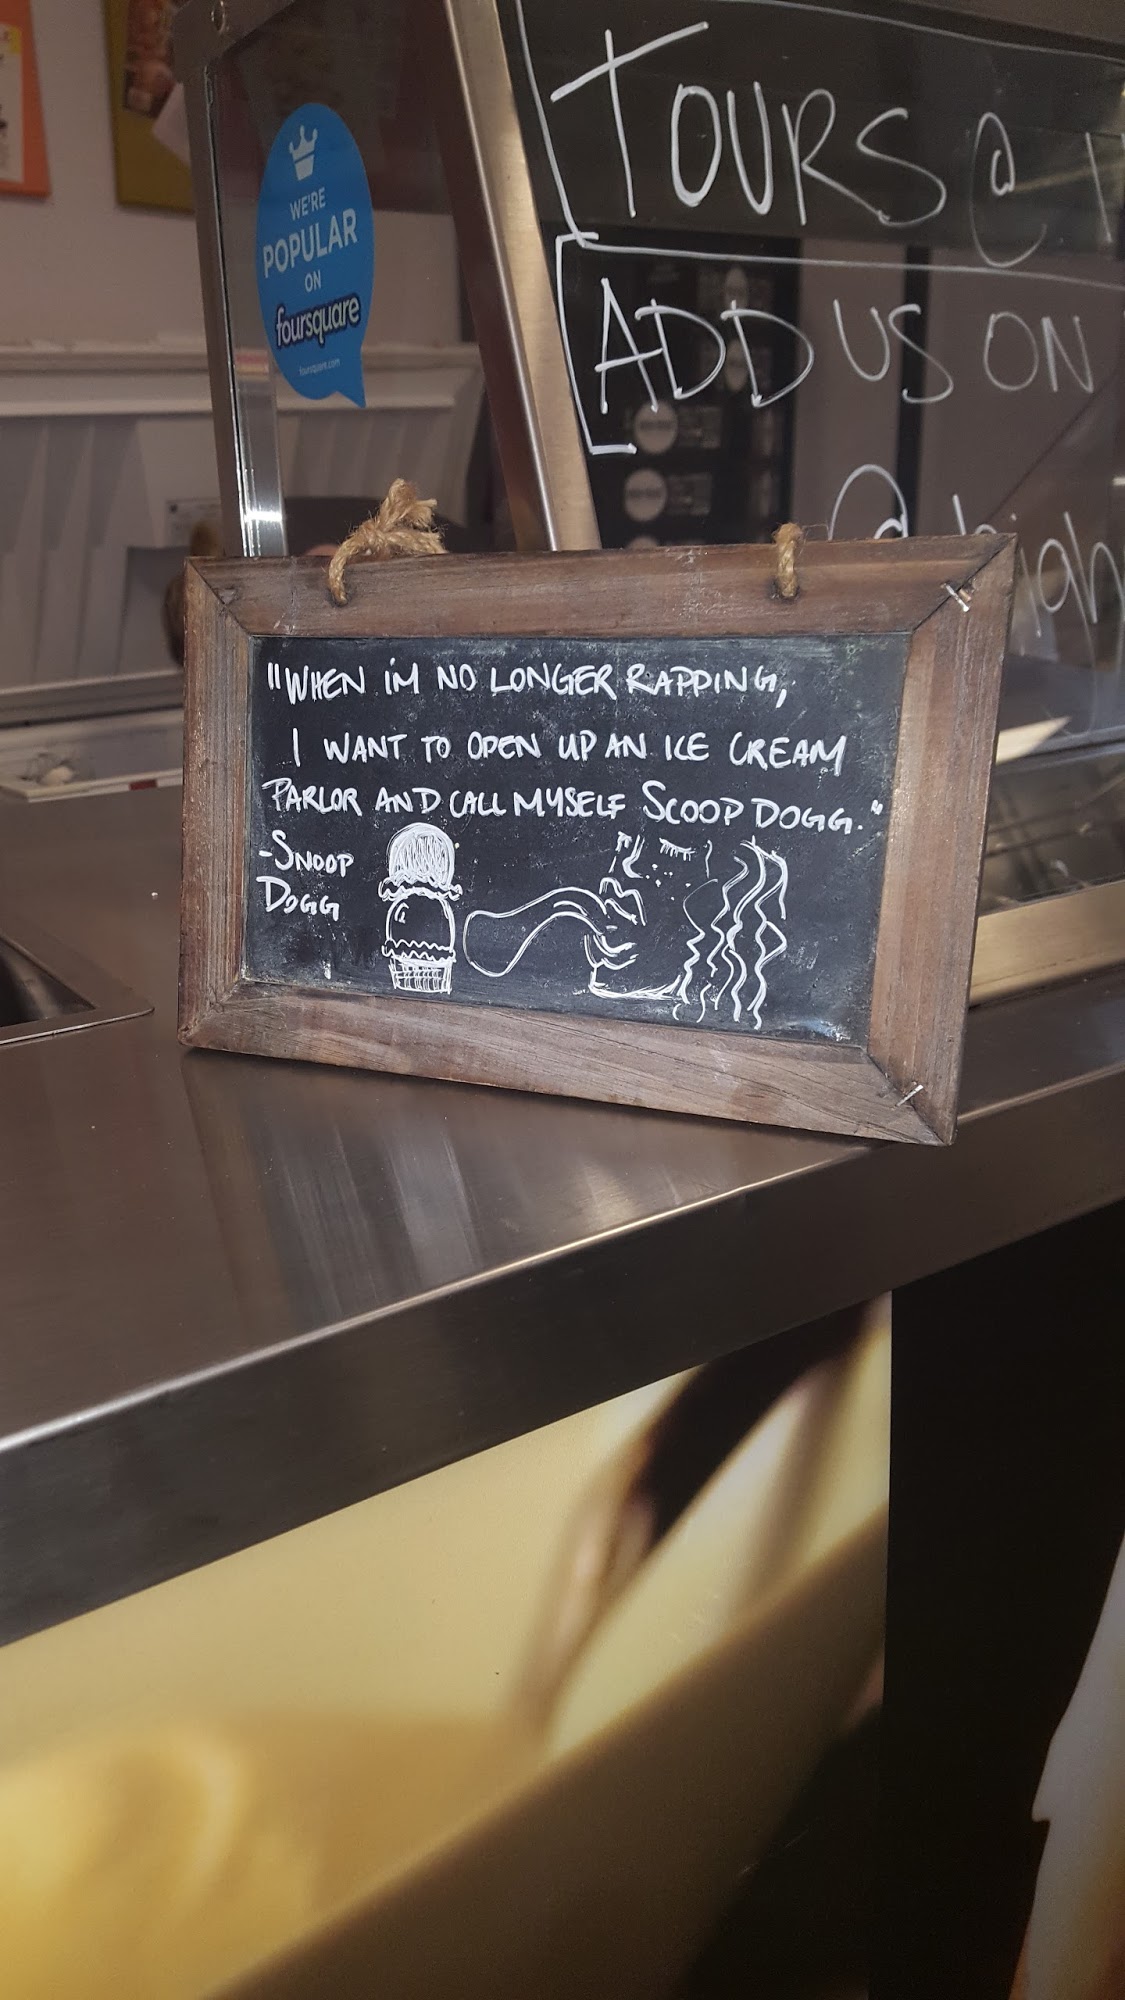 WE'RE
POPULAR
ON
foursquare
foursquare.com
TOURS @
ADD US ON
@high
"WHEN I'M NO LONGER RAPPING,
I WANT TO OPEN UP AN ICE CREAM
PARLOR AND CALL MYSELF SCOOP DOGG."
-SNOOP
DOGG